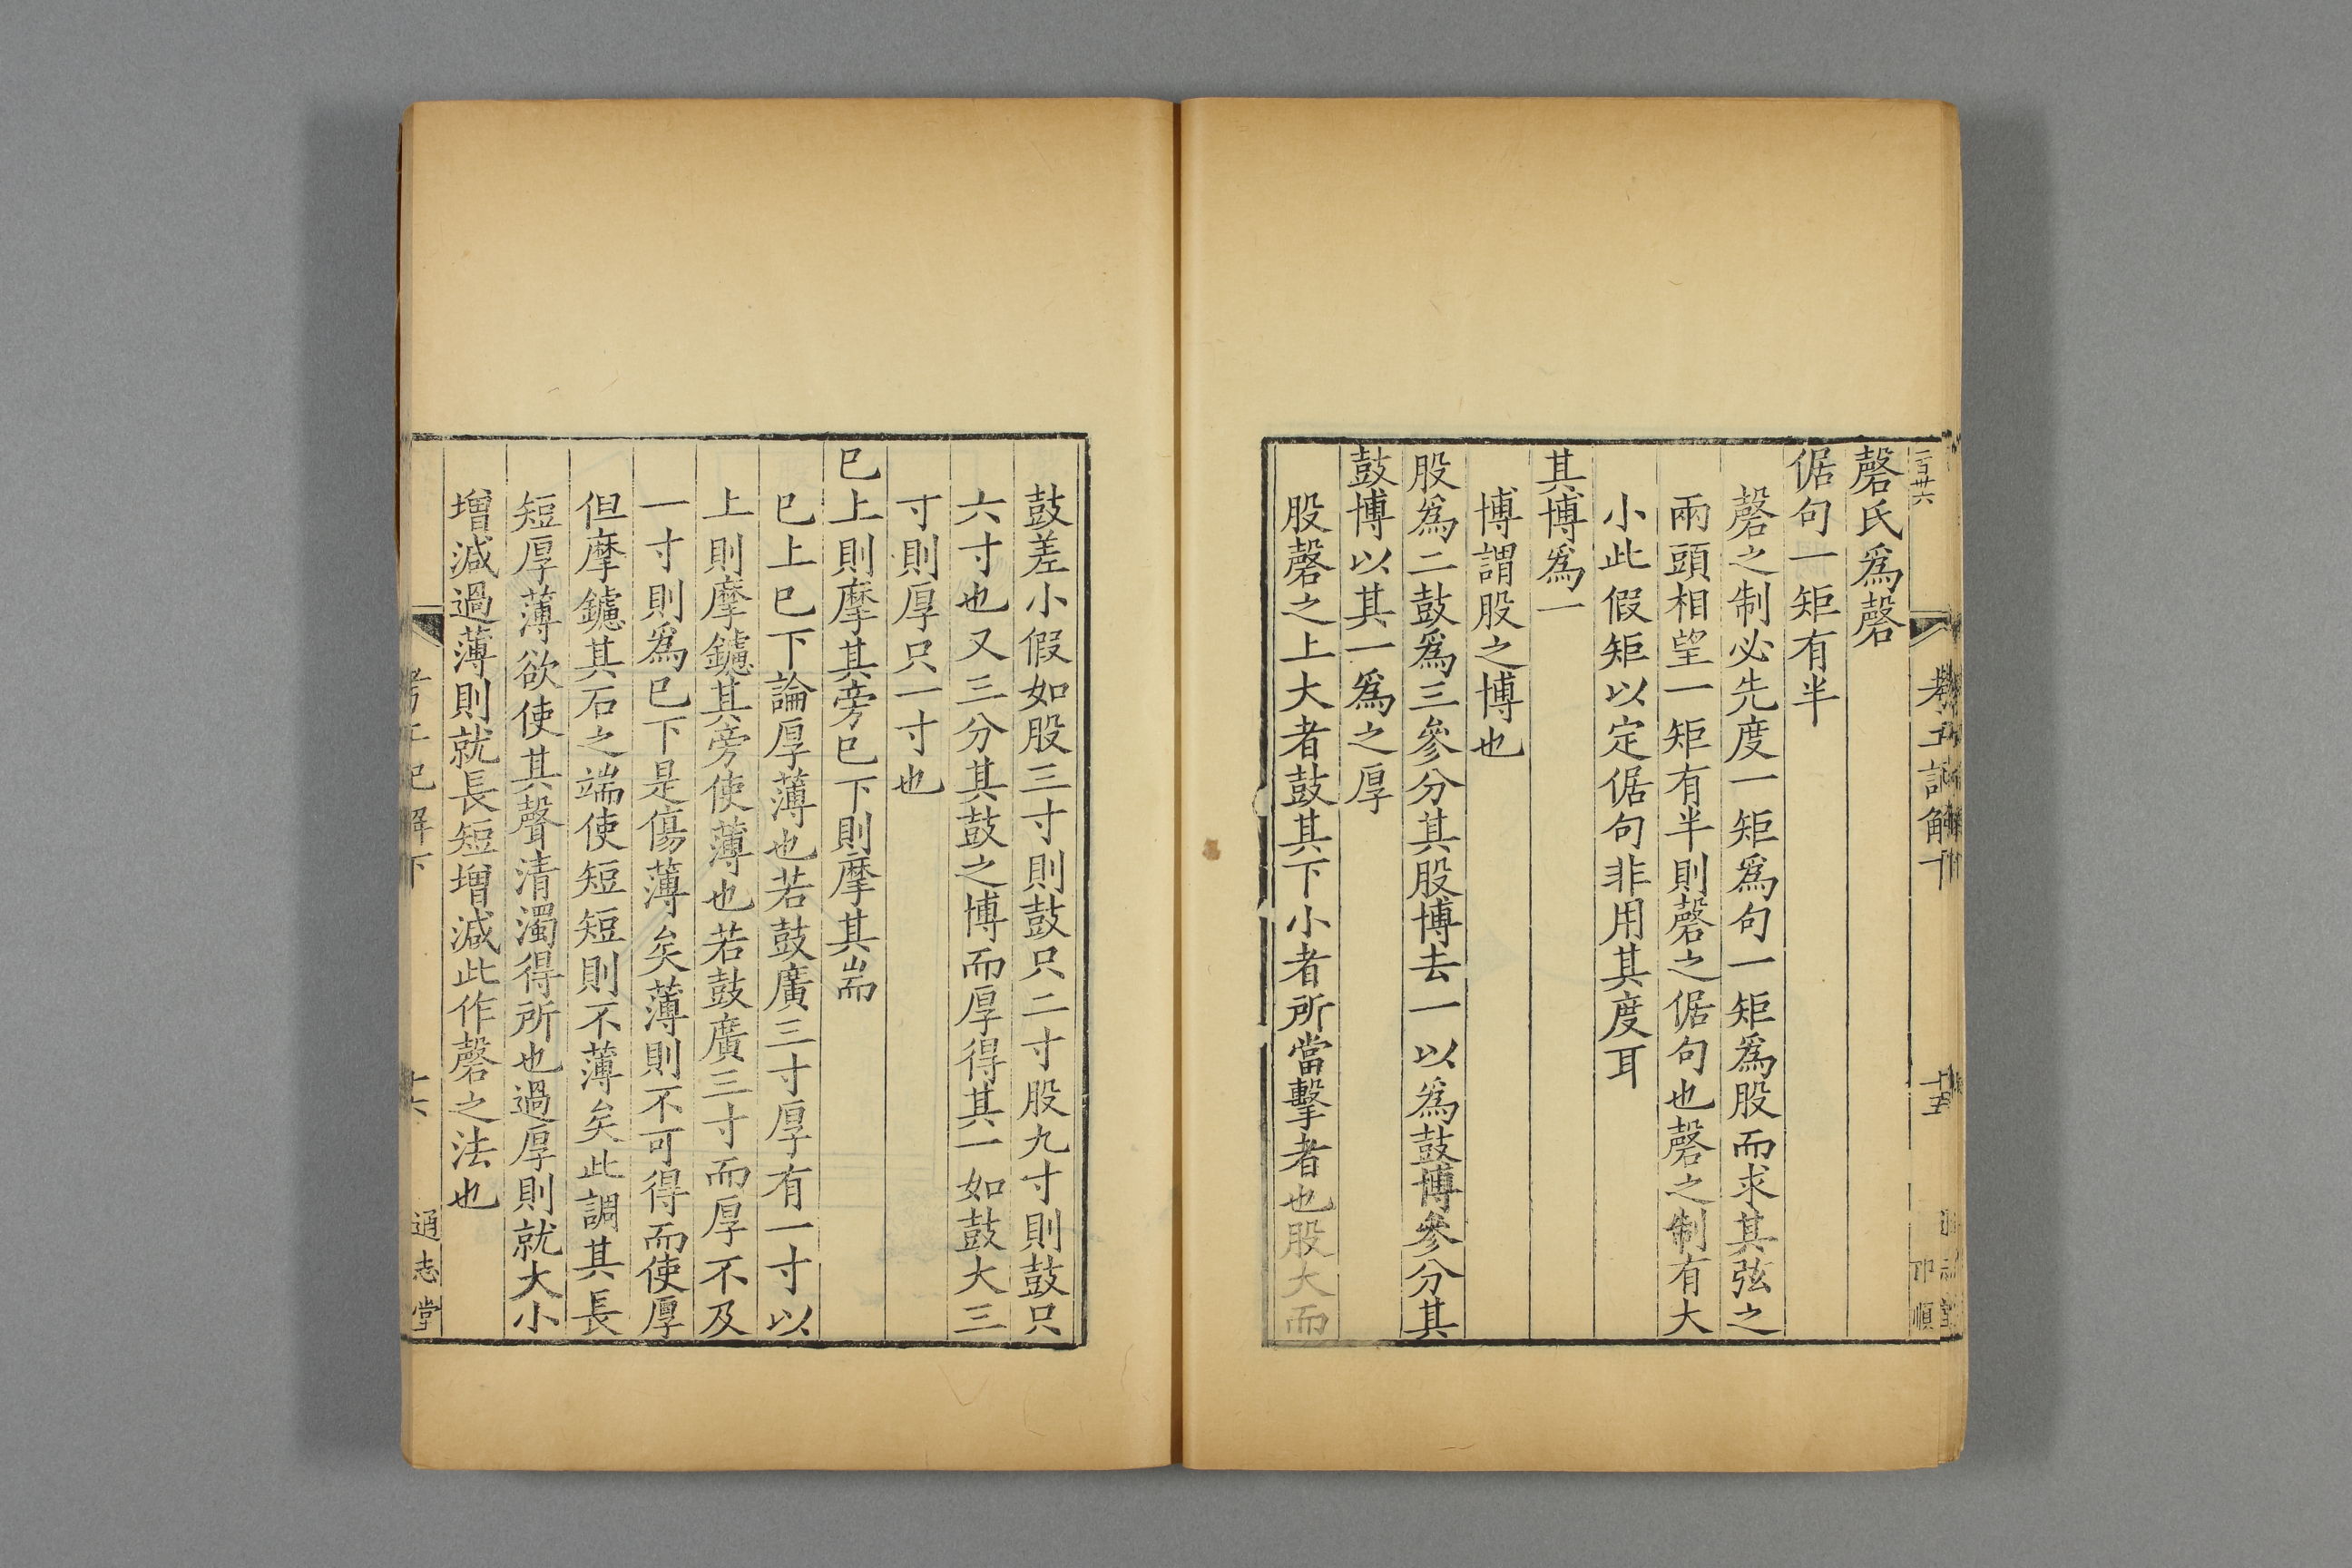 磬氏爲磬
倨句一矩有半
磬之制必先度一矩爲句一矩爲股而求其弦之
兩頭相望一矩有半則磬之倨句也磬之制有大
小此假矩以定倨句非用其度耳
其博爲一
博謂股之博也
股爲二鼓爲三參分其股博去一以爲鼓博參分其
鼓博以其一爲之厚
股磬之上大者鼓其下小者所當擊者也股大而
鼓差小假如股三寸則鼓只二寸股九寸則鼓只
六寸也又三分其鼓之博而厚得其一如鼓大三
寸則厚只一寸也
巳上則摩其旁巳下則摩其耑
巳上巳下論厚薄也若鼓廣三寸厚有一寸以
上則摩鑢其旁使薄也若鼓廣三寸而厚不及
一寸則爲巳下是傷薄矣薄則不可得而使厚
但摩鑢其石之端使短短則不薄矣此調其長
短厚薄欲使其聲清濁得所也過厚則就大小
增減過薄則就長短增減此作磬之法也
考工記解下
通志堂